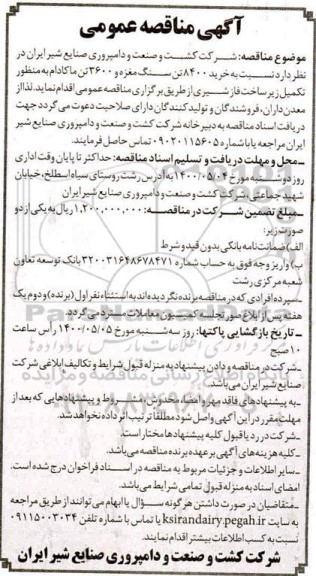 آگهی مناقصه عمومی
موضوع مناقصه: شرکت کشت و صنعت و دامپروری صنایع شیر ایران در
نظر دارد نسبت به خرید ۸۴۰۰ تن سنگ مغزه و ۳۶۰۰ تن ماکادام به منظور
تکمیل زیرساخت فاز شیری از طریق برگزاری مناقصه عمومی اقدام نماید. لذا از
معدن داران، فروشندگان و تولیدکنندگان دارای صلاحیت دعوت می گردد جهت
دریافت اسناد مناقصه به دبیرخانه شرکت کشت و صنعت و دامپروری صنایع شیر
ایران مراجعه یا با شماره ۰۹۰۲۰۱۱۵۶۰۵ تماس حاصل فرمایند.
ـ محل و مهلت دریافت و تسلیم اسناد مناقصه: حداکثر تا پایان وقت اداری
روز دوشنبه مورخ ۱۴۰۰/۰۵/۰۴ به آدرس رشت روستای سیاه اسطلخ، خیابان
شهید جماعتی شرکت کشت و صنعت و دامپروری صنایع شیر ایران
ـ مبلغ تضمین شرکت در مناقصه: ۱،۲۰۰،۰۰۰،۰۰۰ ریال به یکی از دو
صورت زیر:
الف) ضمانت نامه بانکی بدون قید و شرط
ب) واریز وجه فوق به حساب شماره ۳۲۰۰۳۱۶۴۸۶۷۸۴۷۱ بانک توسعه تعاون
شعبه مرکزی رشت
ـ سپرده افرادی که در مناقصه برنده نگردیده اند به استثناء نفر اول (برنده) و دوم یک
هفته پس از ابلاغ صورتجلسه کمیسیون معاملات مسترد می گردد.
ـ تاریخ بازگشایی پاکتها: روز سه شنبه مورخ ۱۴۰۰/۰۵/۰۵ رأس ساعت
۱۰ صبح
ـ شرکت در مناقصه و دادن پیشنهاد به منزله قبول شرایط و تکالیف ابلاغی شرکت
صنایع شیر ایران می باشد.
ـ به پیشنهادهای فاقد مهر و امضاء، مخدوش، مشروط و پیشنهادهایی که بعد از
مهلت مقرر در این آگهی واصل شود مطلقاً ترتیب اثر داده نخواهد شد.
ـ شرکت در رد یا قبول کلیه پیشنهادها مختار است.
ـ کلیه هزینه های آگهی بر عهده برنده مناقصه می باشد.
ـ سایر اطلاعات و جزئیات مربوط به مناقصه در اسناد فراخوان درج شده است.
امضای اسناد به منزله قبول تمامی شرایط می باشد.
ـ متقاضیان در صورت داشتن هر گونه سؤال یا ابهام می توانند از طریق مراجعه
به سایت ksirandairy.pegah.ir یا تماس با شماره تلفن ۰۹۱۱۵۰۰۳۰۳۴
نسبت به کسب اطلاعات بیشتر اقدام نمایند.
شرکت کشت و صنعت و دامپروری صنایع شیر ایران